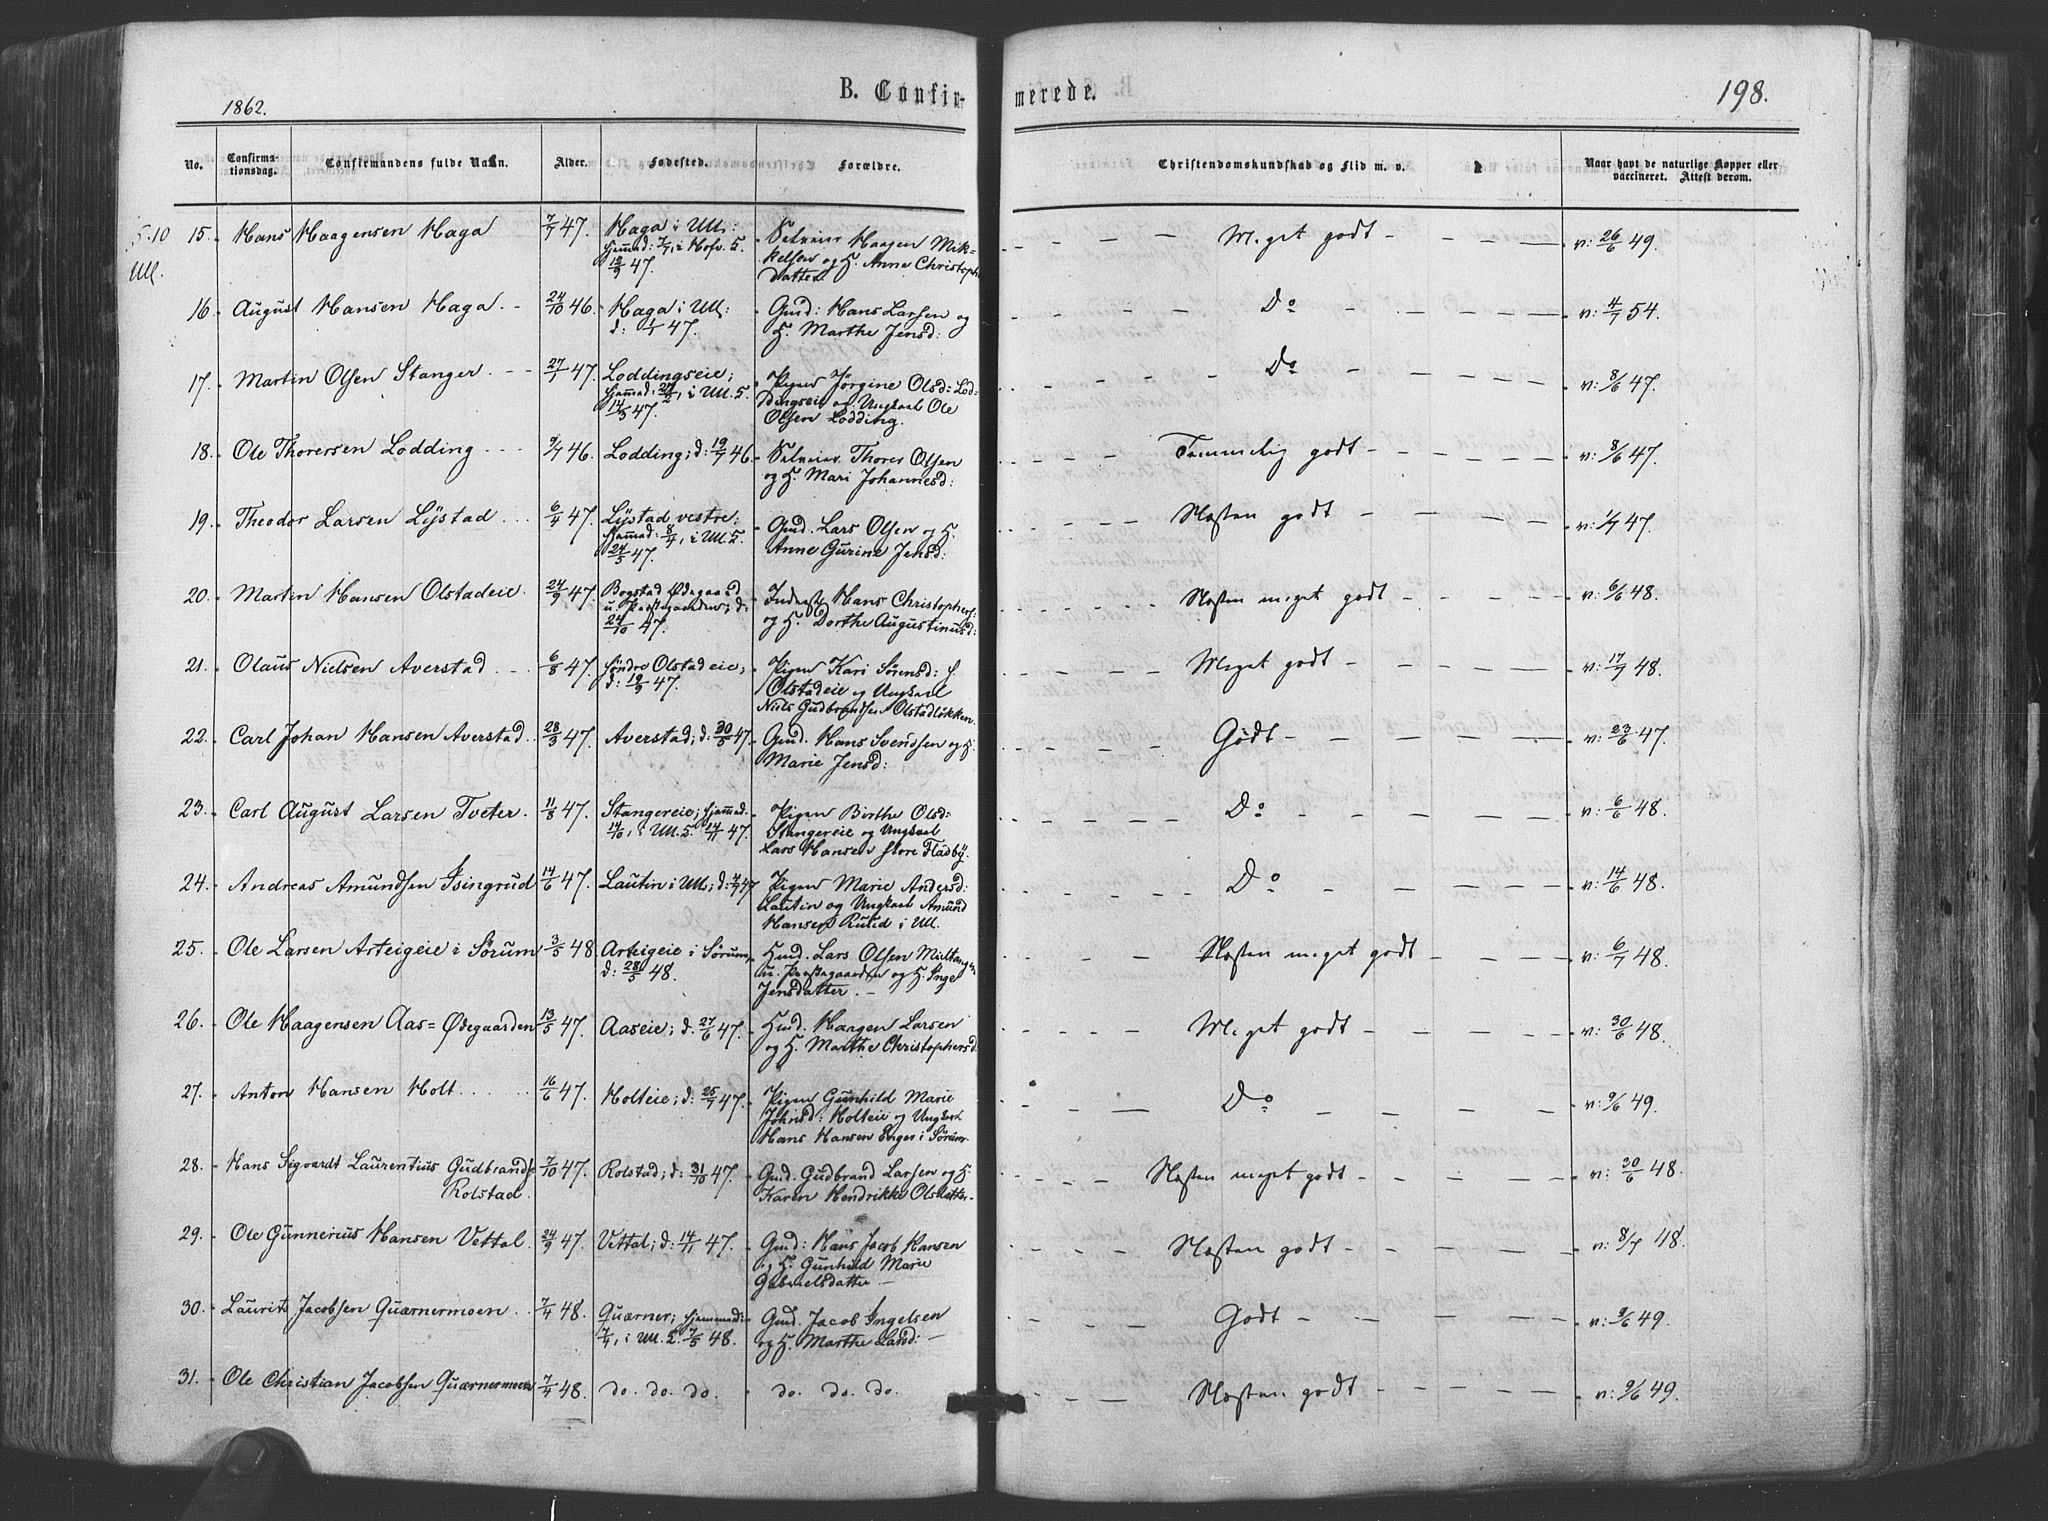 B. Confir-
merede.
198.
1862.
No.
Confirma-
tionsdag.
Confirmandens fulde Navn.
Alder.
Fødested.
Forældre.
Christendomskundskab og Flid m. v.
Naar havt de naturlige Kopper eller
vaccineret. Attest derom.
5-10
Ull.
15. Hans Haagensen Haga 7/7 47. Haga i Ull: Selveier Haagen Mik- Meget godt v: 26/6 49.
hjemmed: 7/7, i Hofv. K. kelsen og H. Anne Christoph
12/9 47. datter
16. August Hansen Haga 24/10 46. Haga i Ull: Gmd: Hans Larsen og Do v: 4/7 54.
d: 1/1 47. H. Marthe Jensd:
17. Martin Olsen Stanger 27/1 47. Loddingseie; Pigen Jörgine Olsd: Lod- Do v: 8/6 47.
hjemmed: 27/2, i Ull. K. dingseie og Ungkarl Ole
14/5 47. Olsen Lodding.
18. Ole Thoresen Lodding 9/7 46. Lodding; d: 19/7 46. Selveier Thorer Olsen Temmelig godt v: 8/6 47.
og H. Mari Johannesd:
19. Theodor Larsen Lystad 6/4 47. Lystad vestre: Gmd. Lars Olsen og H. Næsten godt v: 1/7 47.
hjemmed: 8/4, i Ull. K. Anne Gurine Jensd:
24/5 47.
20. Martin Hansen Olstadeie. 24/9 47. Bogstad Ødegaard Inderst Hans Christophers: Næsten meget godt v: 6/6 48.
u. Præstegaarden; d: og H. Dorthe Augustinusd:
24/10 47.
21. Olaus Nielsen Averstad 6/8 47. Søndre Olstadeie; Pigen Kari Sörensd: S. Meget godt v: 17/7 48.
d: 19/9 47. Olstadeie og Ungkarl
Niels Gudbrandsen Olstadløkken.
22. Carl Johan Hansen Averstad 28/3 47. Averstad; d: 30/5 47. Gmd. Hans Svendsen og H. Godt v: 23/6 47.
Marie Jensd:
23. Carl August Larsen Tveter. 11/8 47. Stangereie; hjemmed. Pigen Birthe Olsd: Do v: 6/6 48.
14/10, i Ull. K. 14/11 47. Stangereie og Ungkarl
Lars Hansen store Fladby.
24. Andreas Amundsen Isingrud 14/6 47. Lautin i Ull; d: 4/7 47 Pigen Marie Andersd: Do v: 14/6 48.
Lautin og Ungkarl Amund
Hansen Rulud i Ull.
25. Ole Larsen Arteigeie i Sörum 3/5 48. Arteigeie i Sörum, Hmd. Lars Olsen Miltangen Næsten meget godt v: 6/7 48.
d: 28/5 48. u. Præstegaarden og H. Inge
Jensdatter.
26. Ole Haagensen Aas= Ødegaarden 13/5 47. Aaseie; d. 27/6 47. Hmd. Haagen Larsen Meget godt v: 30/6 48.
og H. Marthe Christophersd.
27. Anton Hansen Holt 16/6 47. Holteie; d: 25/7 47. Pigen Gunhild Marie Do v: 9/6 49.
Johnsd: Holteie og Ungkarl
Hans Hansen Enger i Sörum.
28. Hans Sigvardt Laurentius Gudbrands. 7/10 47. Rolstad; d: 31/10 47. Gmd. Gudbrand Larsen og H. Næsten meget godt v: 30/6 48.
Rolstad. Karen Hendrikke Olsdatter
29. Ole Gunnerius Hansen Vettal. 24/9 47. Vettal; d: 14/11 47. Gmd: Hans Jacob Hansen Næsten godt v: 8/7 48.
og H. Gunhild Marie
Gabrielsdatter
30. Laurits Jacobsen Quærnermoen 7/4 48. Quærner; hjemmed: Gmd. Jacob Ingelsen Godt v: 9/6 49.
7/4, i Ull. K. 7/5 48. og H. Marthe Larsd:
31. Ole Christian Jacobsen Quærnermoen 7/4 48. do. do. do. do. do. do. Næsten godt v: 9/6 49.